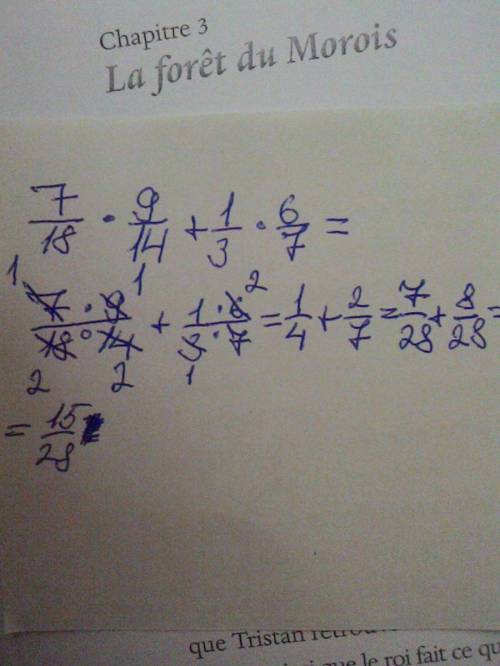 Chapitre 3
La forêt du Morois
7/18 · 9/14 + 1/3 · 6/7 =
1 1 2
7 · 9/18 · 14 + 1 · 6/3 · 7 = 1/4 + 2/7 = 7/28 + 8/28 =
2 2 1
= 15/28
que Tristan retrouv
que le roi fait ce qu